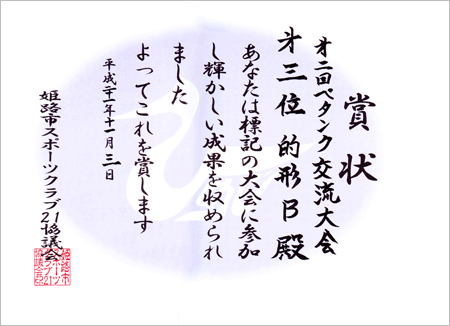 賞状
第二回ペタンク交流大会
第三位 的形B殿
あなたは標記の大会に参加
し輝かしい成果を収められ
ました
よってこれを賞します
平成二十一年十一月三日
姫路市スポーツクラブ21協議会